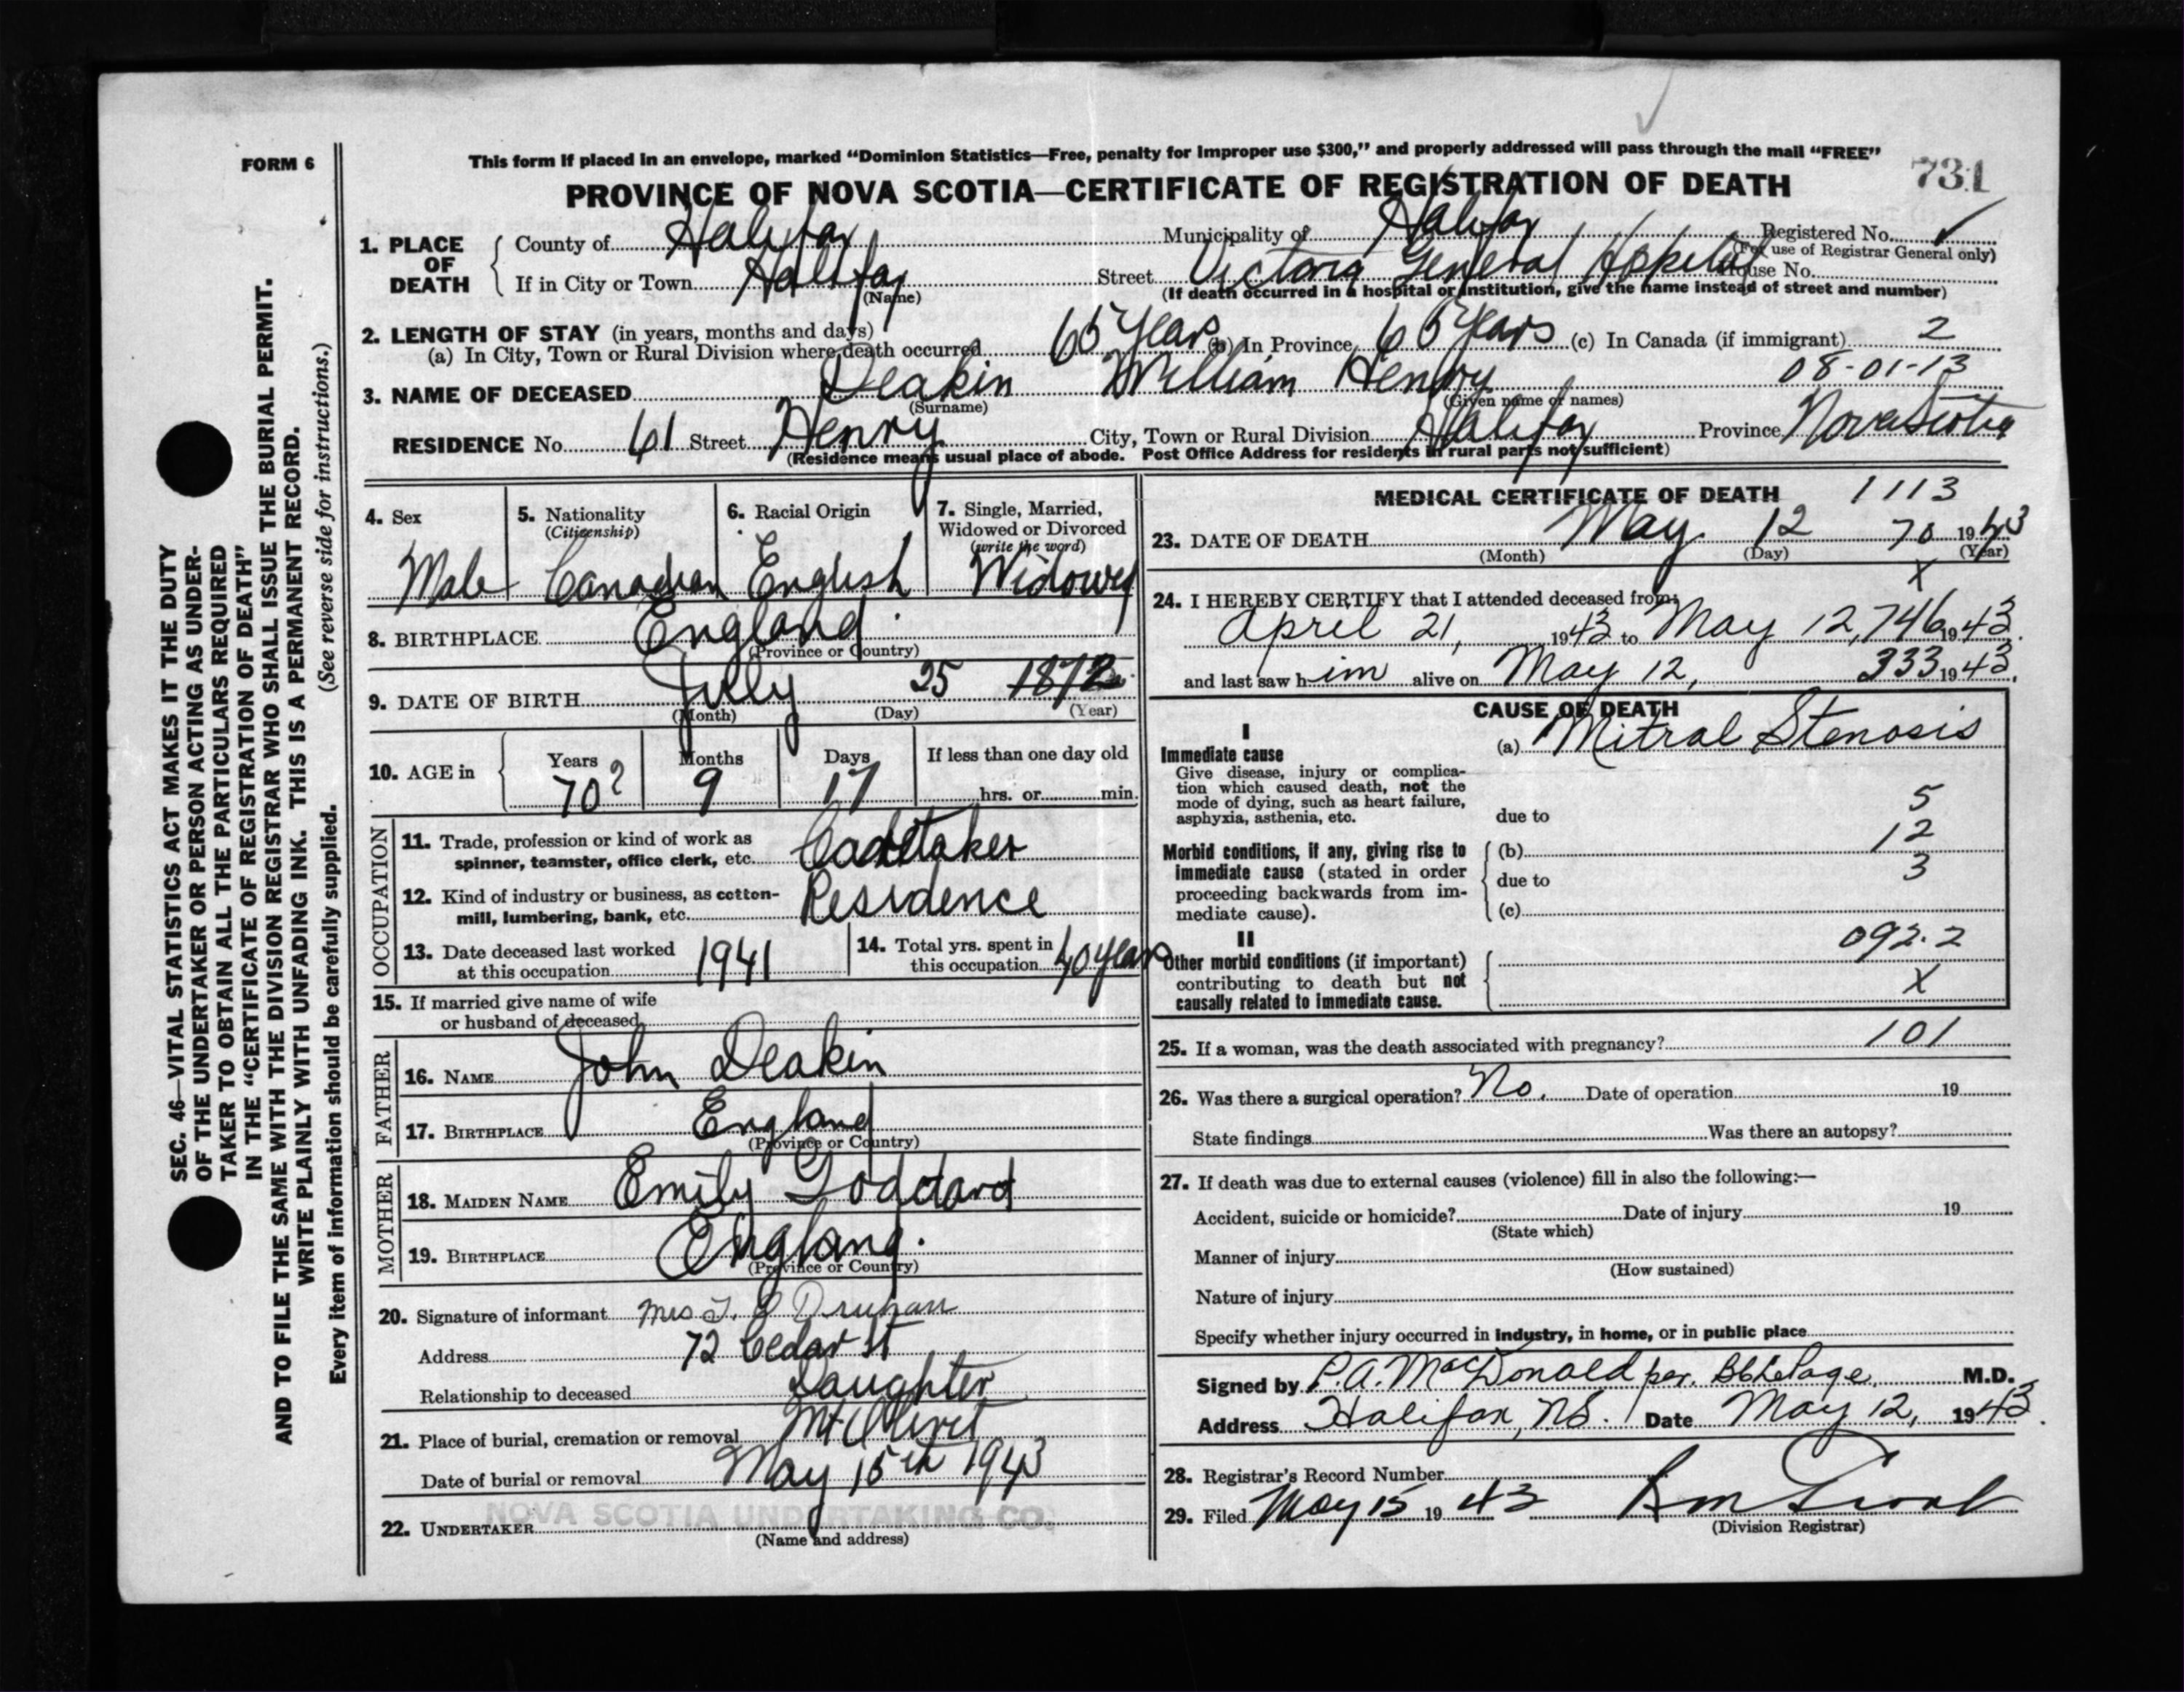 FORM 6
This form if placed in an envelope, marked “Dominion Statistics—Free, penalty for improper use $300,” and properly addressed will pass through the mail “FREE”
PROVINCE OF NOVA SCOTIA—CERTIFICATE OF REGISTRATION OF DEATH
731
1. PLACE OF DEATH
County of Halifax Municipality of Halifax Registered No. ✓
(For use of Registrar General only)
If in City or Town Halifax Street Victoria General Hospital House No.
(Name) (If death occurred in a hospital or institution, give the name instead of street and number)
2. LENGTH OF STAY (in years, months and days)
(a) In City, Town or Rural Division where death occurred 65 Years (b) In Province 65 Years (c) In Canada (if immigrant) 2
08-01-13
3. NAME OF DECEASED Deakin William Henry
(Surname) (Given name or names)
RESIDENCE No. 61 Street Henry City, Town or Rural Division Halifax Province Nova Scotia
(Residence means usual place of abode. Post Office Address for residents in rural parts not sufficient)
4. Sex
Male
5. Nationality
(Citizenship)
Canadian
6. Racial Origin
English
7. Single, Married, Widowed or Divorced
(write the word)
Widower
8. BIRTHPLACE England
(Province or Country)
9. DATE OF BIRTH July 25 1872
(Month) (Day) (Year)
10. AGE in
Years Months Days If less than one day old
70? 9 17 hrs. or min.
OCCUPATION
11. Trade, profession or kind of work as
spinner, teamster, office clerk, etc. Caretaker
12. Kind of industry or business, as cotton-
mill, lumbering, bank, etc. Residence
13. Date deceased last worked
at this occupation 1941
14. Total yrs. spent in
this occupation 40 years
15. If married give name of wife
or husband of deceased
FATHER
16. NAME John Deakin
17. BIRTHPLACE England
(Province or Country)
MOTHER
18. MAIDEN NAME Emily Goddard
19. BIRTHPLACE England.
(Province or Country)
20. Signature of informant Mrs Druhan
Address 72 Cedar St
Relationship to deceased Daughter
21. Place of burial, cremation or removal Mt Olivet
Date of burial or removal May 15th 1943
22. UNDERTAKER NOVA SCOTIA UNDERTAKING CO.
(Name and address)
MEDICAL CERTIFICATE OF DEATH 1113
23. DATE OF DEATH May 12 70 1943
(Month) (Day) (Year)
X
24. I HEREBY CERTIFY that I attended deceased from:
April 21, 1943 to May 12, 746 1943.
and last saw him alive on May 12, 333 1943.
CAUSE OF DEATH
I
Immediate cause
(a) Mitral Stenosis
Give disease, injury or complica-
tion which caused death, not the
mode of dying, such as heart failure,
asphyxia, asthenia, etc.
5
due to
12
Morbid conditions, if any, giving rise to
immediate cause (stated in order
proceeding backwards from im-
mediate cause).
(b)
due to 3
(c)
II
092.2
Other morbid conditions (if important)
contributing to death but not
causally related to immediate cause.
X
25. If a woman, was the death associated with pregnancy? 101
26. Was there a surgical operation? No. Date of operation 19
State findings Was there an autopsy?
27. If death was due to external causes (violence) fill in also the following:—
Accident, suicide or homicide? Date of injury 19
(State which)
Manner of injury
(How sustained)
Nature of injury
Specify whether injury occurred in industry, in home, or in public place
Signed by P.A. MacDonald per. LePage M.D.
Address Halifax, N.S. Date May 12, 1943.
28. Registrar's Record Number
29. Filed May 15 1943
(Division Registrar)
SEC. 46—VITAL STATISTICS ACT MAKES IT THE DUTY
OF THE UNDERTAKER OR PERSON ACTING AS UNDER-
TAKER TO OBTAIN ALL THE PARTICULARS REQUIRED
IN THE “CERTIFICATE OF REGISTRATION OF DEATH”
AND TO FILE THE SAME WITH THE DIVISION REGISTRAR WHO SHALL ISSUE THE BURIAL PERMIT.
WRITE PLAINLY WITH UNFADING INK. THIS IS A PERMANENT RECORD.
(See reverse side for instructions.)
Every item of information should be carefully supplied.